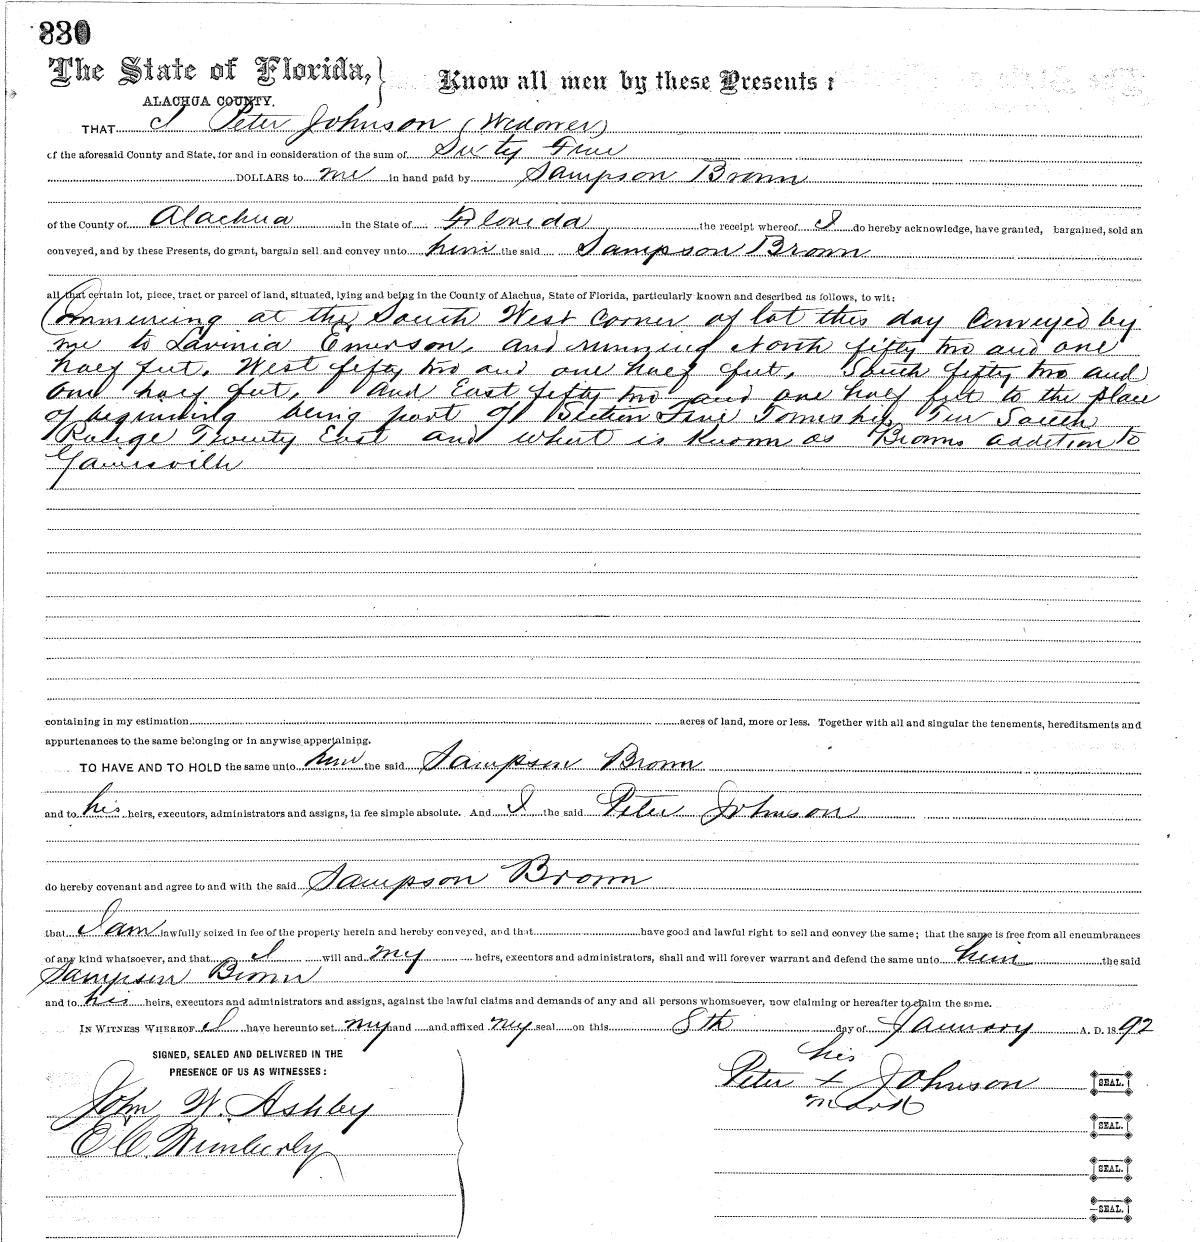 330
The State of Florida,
ALACHUA COUNTY.
Know all men by these Presents:
THAT I Peter Johnson (Widower)
of the aforesaid County and State, for and in consideration of the sum of Sixty Five
DOLLARS to me in hand paid by Sampson Brown
of the County of Alachua in the State of Florida the receipt whereof I do hereby acknowledge, have granted, bargained, sold an
conveyed, and by these Presents, do grant, bargain sell and convey unto him the said Sampson Brown
all that certain lot, piece, tract or parcel of land, situated, lying and being in the County of Alachua, State of Florida, particularly known and described as follows, to wit:
Commencing at the South West corner of lot this day conveyed by
me to Lavinia Emerson, and running North fifty two and one
half feet, West fifty two and one half feet, South fifty two and
one half feet, and East fifty two and one half feet to the place
of beginning being part of Section Five Township Ten South
Range Twenty East and what is known as Browns addition to
Gainesville
containing in my estimation acres of land, more or less. Together with all and singular the tenements, hereditaments and
appurtenances to the same belonging or in anywise appertaining.
TO HAVE AND TO HOLD the same unto him the said Sampson Brown
and to his heirs, executors, administrators and assigns, in fee simple absolute. And I the said Peter Johnson
do hereby covenant and agree to and with the said Sampson Brown
that I am lawfully seized in fee of the property herein and hereby conveyed, and that have good and lawful right to sell and convey the same; that the same is free from all encumbrances
of any kind whatsoever, and that I will and my heirs, executors and administrators, shall and will forever warrant and defend the same unto him the said
Sampson Brown
and to his heirs, executors and administrators and assigns, against the lawful claims and demands of any and all persons whomsoever, now claiming or hereafter to claim the same.
IN WITNESS WHEREOF I have hereunto set my hand and affixed my seal on this 8th day of January A. D. 1892
SIGNED, SEALED AND DELIVERED IN THE
PRESENCE OF US AS WITNESSES:
John W. Ashby
E. C. Wimberly
his
Peter + Johnson SEAL.
mark
SEAL.
SEAL.
SEAL.